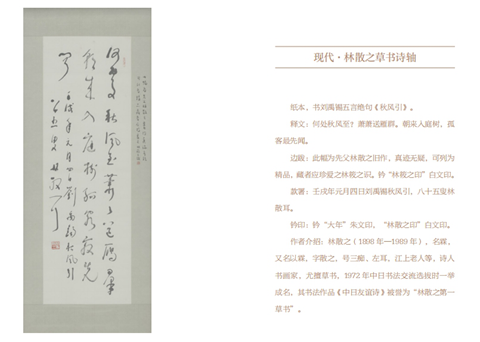 何處秋風至蕭蕭送雁羣
朝来入庭樹孤客最先
聞 壬戌年元月四日劉禹錫秋風引
八十五叟林散耳
现代·林散之草书诗轴
纸本，书刘禹锡五言绝句《秋风引》。
释文：何处秋风至？萧萧送雁群。朝来入庭树，孤
客最先闻。
边跋：此幅为先父林散之旧作，真迹无疑，可列为
精品，藏者应珍爱之林筱之识。钤“林筱之印”白文印。
款署：壬戌年元月四日刘禹锡秋风引，八十五叟林
散耳。
钤印：钤“大年”朱文印，“林散之印”白文印。
作者介绍：林散之（1898 年—1989 年），名霖，
又名以霖，字散之，号三痴、左耳、江上老人等，诗人
书画家，尤擅草书，1972 年中日书法交流选拔时一举
成名，其书法作品《中日友谊诗》被誉为“林散之第一
草书”。